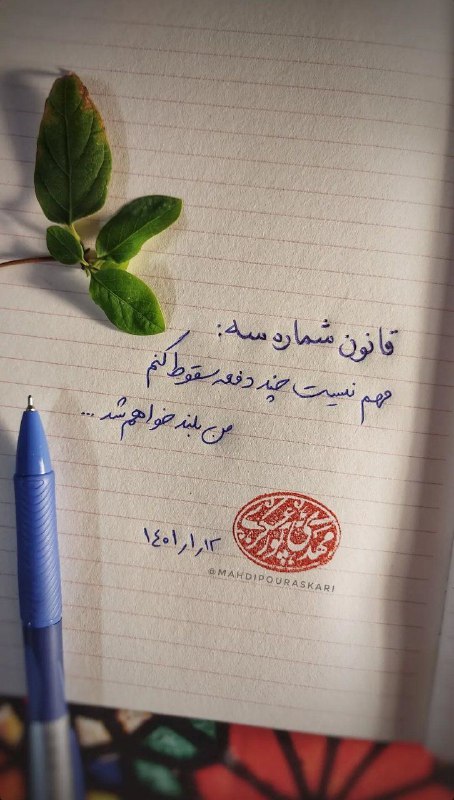 قانون شماره سه:
مهم نیست چند دفعه سقوط کنم
من بلند خواهم شد ...
۱۴۰۱ر۱ر۱۲
مهدی پورعسکری
@MAHDIPOURASKARI